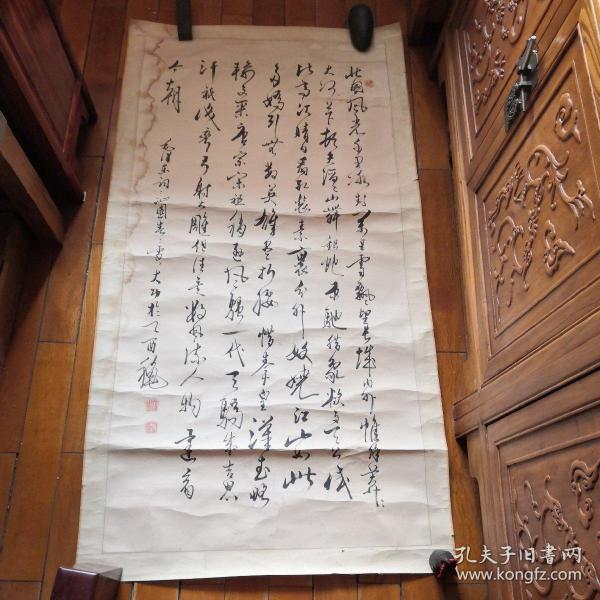 北国风光千里冰封万里雪飘望长城内外惟余莽莽
大河上下顿失滔滔山舞银蛇原驰蜡象欲与天公试
比高须晴日看红装素裹分外妖娆江山如此
多娇引无数英雄竞折腰惜秦皇汉武略
输文采唐宗宋祖稍逊风骚一代天骄成吉思
汗只识弯弓射大雕俱往矣数风流人物还看
今朝
毛泽东词沁园春雪
孔夫子旧书网
www.kongfz.com